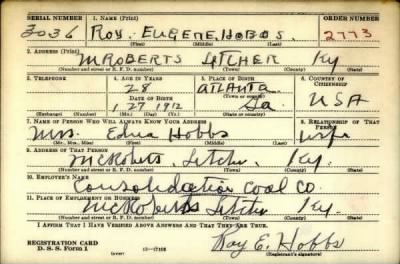 SERIAL NUMBER 1. NAME (Print) ORDER NUMBER
3036 ROY. EUGENE. HOBBS. 2773
(First) (Middle) (Last)
2. ADDRESS (Print)
McROBERTS LETCHER Ky
(Number and street or R. F. D. number) (Town) (County) (State)
3. TELEPHONE 4. AGE IN YEARS 5. PLACE OF BIRTH 6. COUNTRY OF CITIZENSHIP
28 ATLANTA
DATE OF BIRTH (Town or county)
1 27 1912 Ga. USA
(Exchange) (Number) (Mo.) (Day) (Yr.) (State or country)
7. NAME OF PERSON WHO WILL ALWAYS KNOW YOUR ADDRESS 8. RELATIONSHIP OF THAT PERSON
Mrs. Edna Hobbs wife
(Mr., Mrs., Miss) (First) (Middle) (Last)
9. ADDRESS OF THAT PERSON
McRoberts, Letcher, Ky.
(Number and street or R. F. D. number) (Town) (County) (State)
10. EMPLOYER'S NAME
Consolidation Coal Co.
11. PLACE OF EMPLOYMENT OR BUSINESS
McRoberts Letcher Ky.
(Number and street or R. F. D. number) (Town) (County) (State)
I AFFIRM THAT I HAVE VERIFIED ABOVE ANSWERS AND THAT THEY ARE TRUE.
REGISTRATION CARD
D. S. S. Form 1 (over) Roy E. Hobbs
(Registrant's signature)